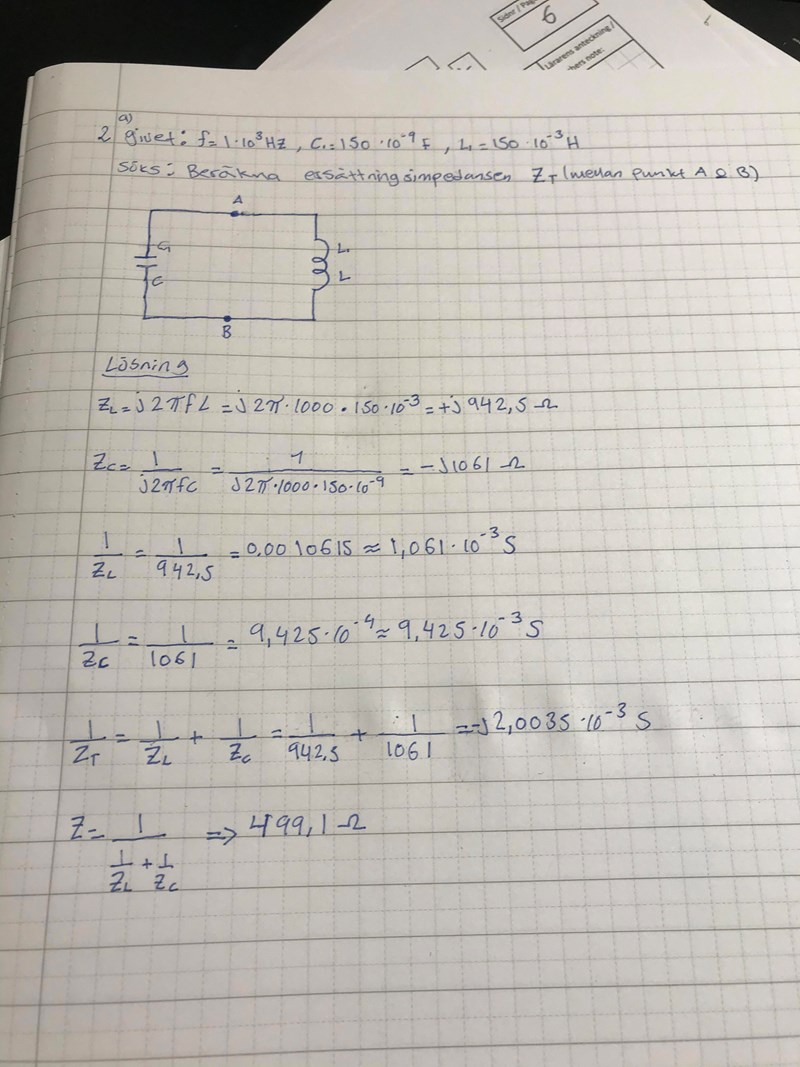 Sidnr / Pag
6
Lärarens anteckning /
hers note:
a)
2 givet: f=1·10³Hz, C₁=150·10⁻⁹F, L₁=150·10⁻³H
Söks: Beräkna ersättningsimpedansen Z_T (mellan punkt A & B)
A
C₁
C
L₁
L
B
Lösning
Z_L=j2πfL=j2π·1000·150·10⁻³=+j942,5Ω
Z_C=1/(j2πfC)=1/(j2π·1000·150·10⁻⁹)=-j1061Ω
1/Z_L=1/942,5=0.0010615≈1,061·10⁻³S
1/Z_C=1/1061=9,425·10⁻⁴≈9,425·10⁻³S
1/Z_T=1/Z_L+1/Z_C=1/942,5+1/1061=-j2,0035·10⁻³S
Z=1/(1/Z_L+1/Z_C)=>499,1Ω